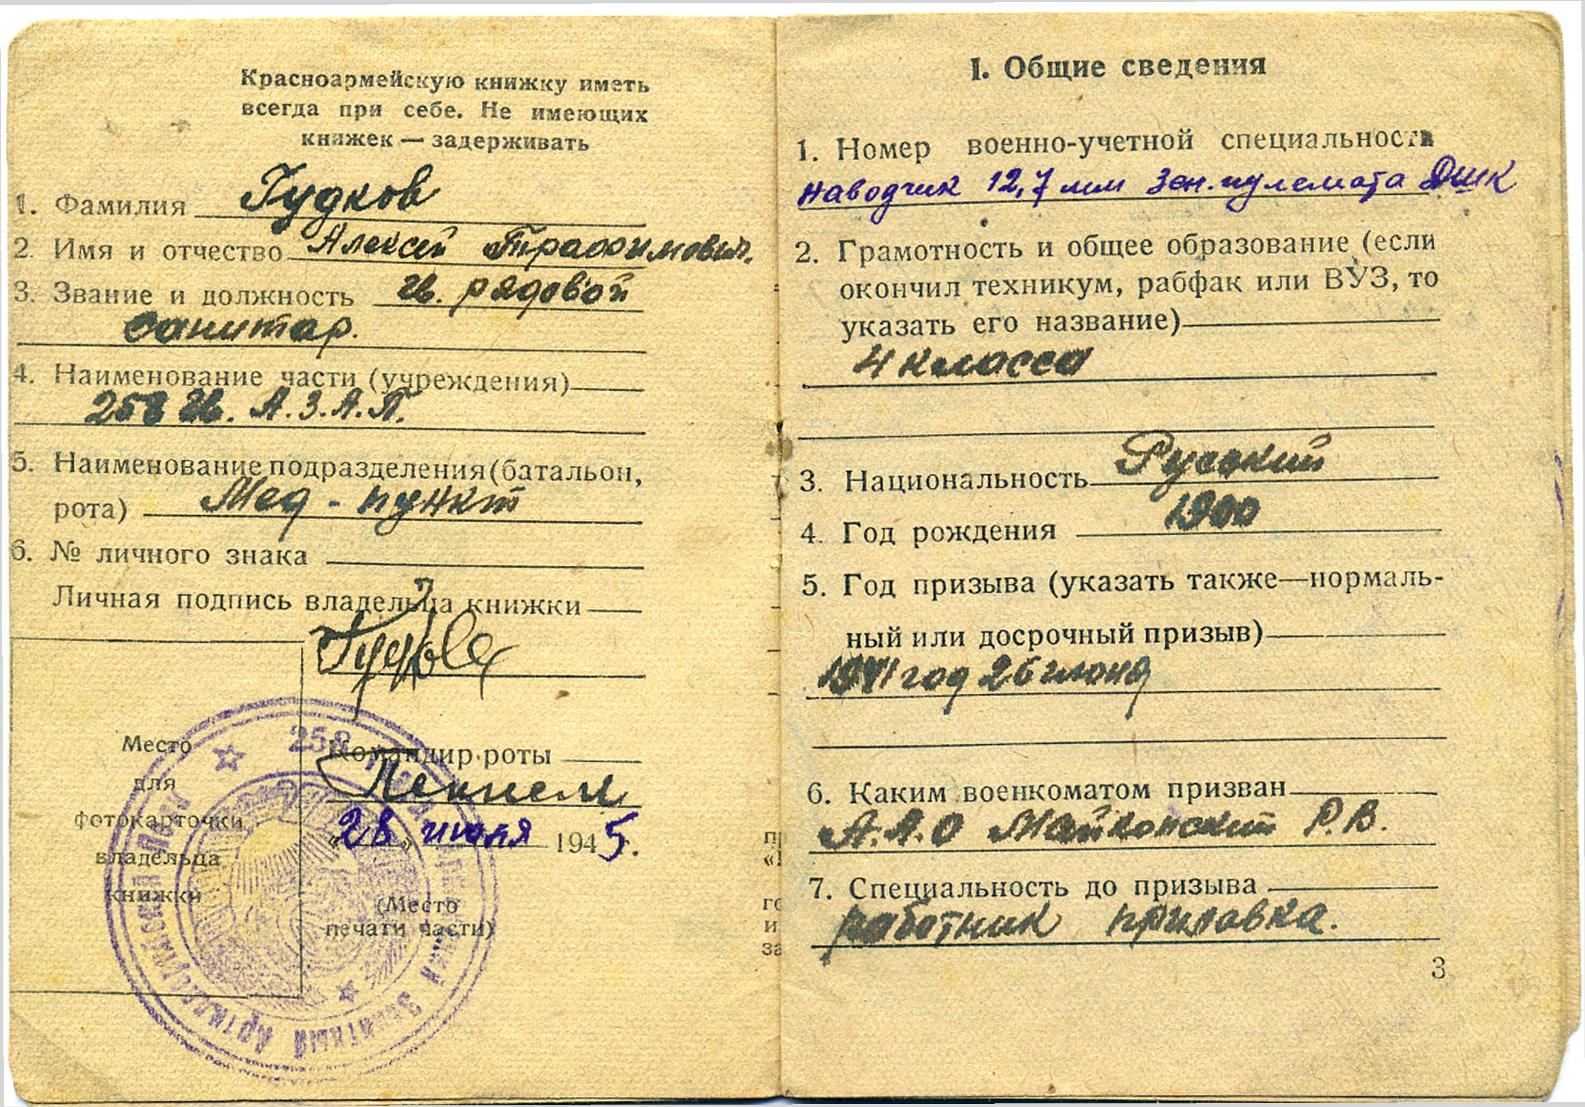 Красноармейскую книжку иметь
всегда при себе. Не имеющих
книжек — задерживать
1. Фамилия Гудков
2. Имя и отчество Алексей Трафимович.
3. Звание и должность гв. рядовой
санитар.
4. Наименование части (учреждения)
258 гв. А.З.А.П.
5. Наименование подразделения (батальон,
рота) Мед-пункт
6. № личного знака
Личная подпись владельца книжки
Гудков
Место
для
фотокарточки
владельца
книжки
258
Командир роты
"28" июля 1945.
(Место
печати части)
Зенитный Артиллерийский Полк
I. Общие сведения
1. Номер военно-учетной специальности
наводчик 12,7 мм зен. пулемета ДШК
2. Грамотность и общее образование (если
окончил техникум, рабфак или ВУЗ, то
указать его название)
4 класса
3. Национальность Русский
4. Год рождения 1900
5. Год призыва (указать также—нормаль-
ный или досрочный призыв)
1941 год 26 июня
6. Каким военкоматом призван
А.А.О Майкопский Р.В.
7. Специальность до призыва
работник прилавка.
3